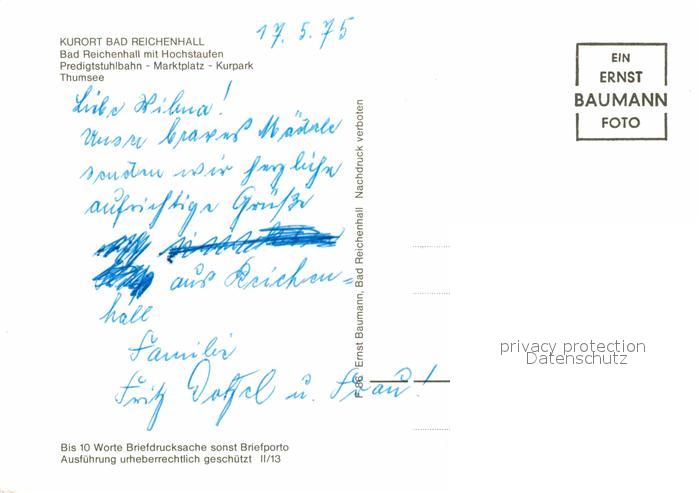 17.5.75
KURORT BAD REICHENHALL
Bad Reichenhall mit Hochstaufen
Predigtstuhlbahn - Marktplatz - Kurpark
Thumsee
EIN
ERNST
BAUMANN
FOTO
Liebe Wilma!
Unser braves Mädele
senden wir herzliche
aufrichtige Grüße
aus Reichen=
hall
Familie
Fritz u. Frau!
F 86 Ernst Baumann, Bad Reichenhall Nachdruck verboten
privacy protection
Datenschutz
Bis 10 Worte Briefdrucksache sonst Briefporto
Ausführung urheberrechtlich geschützt II/13